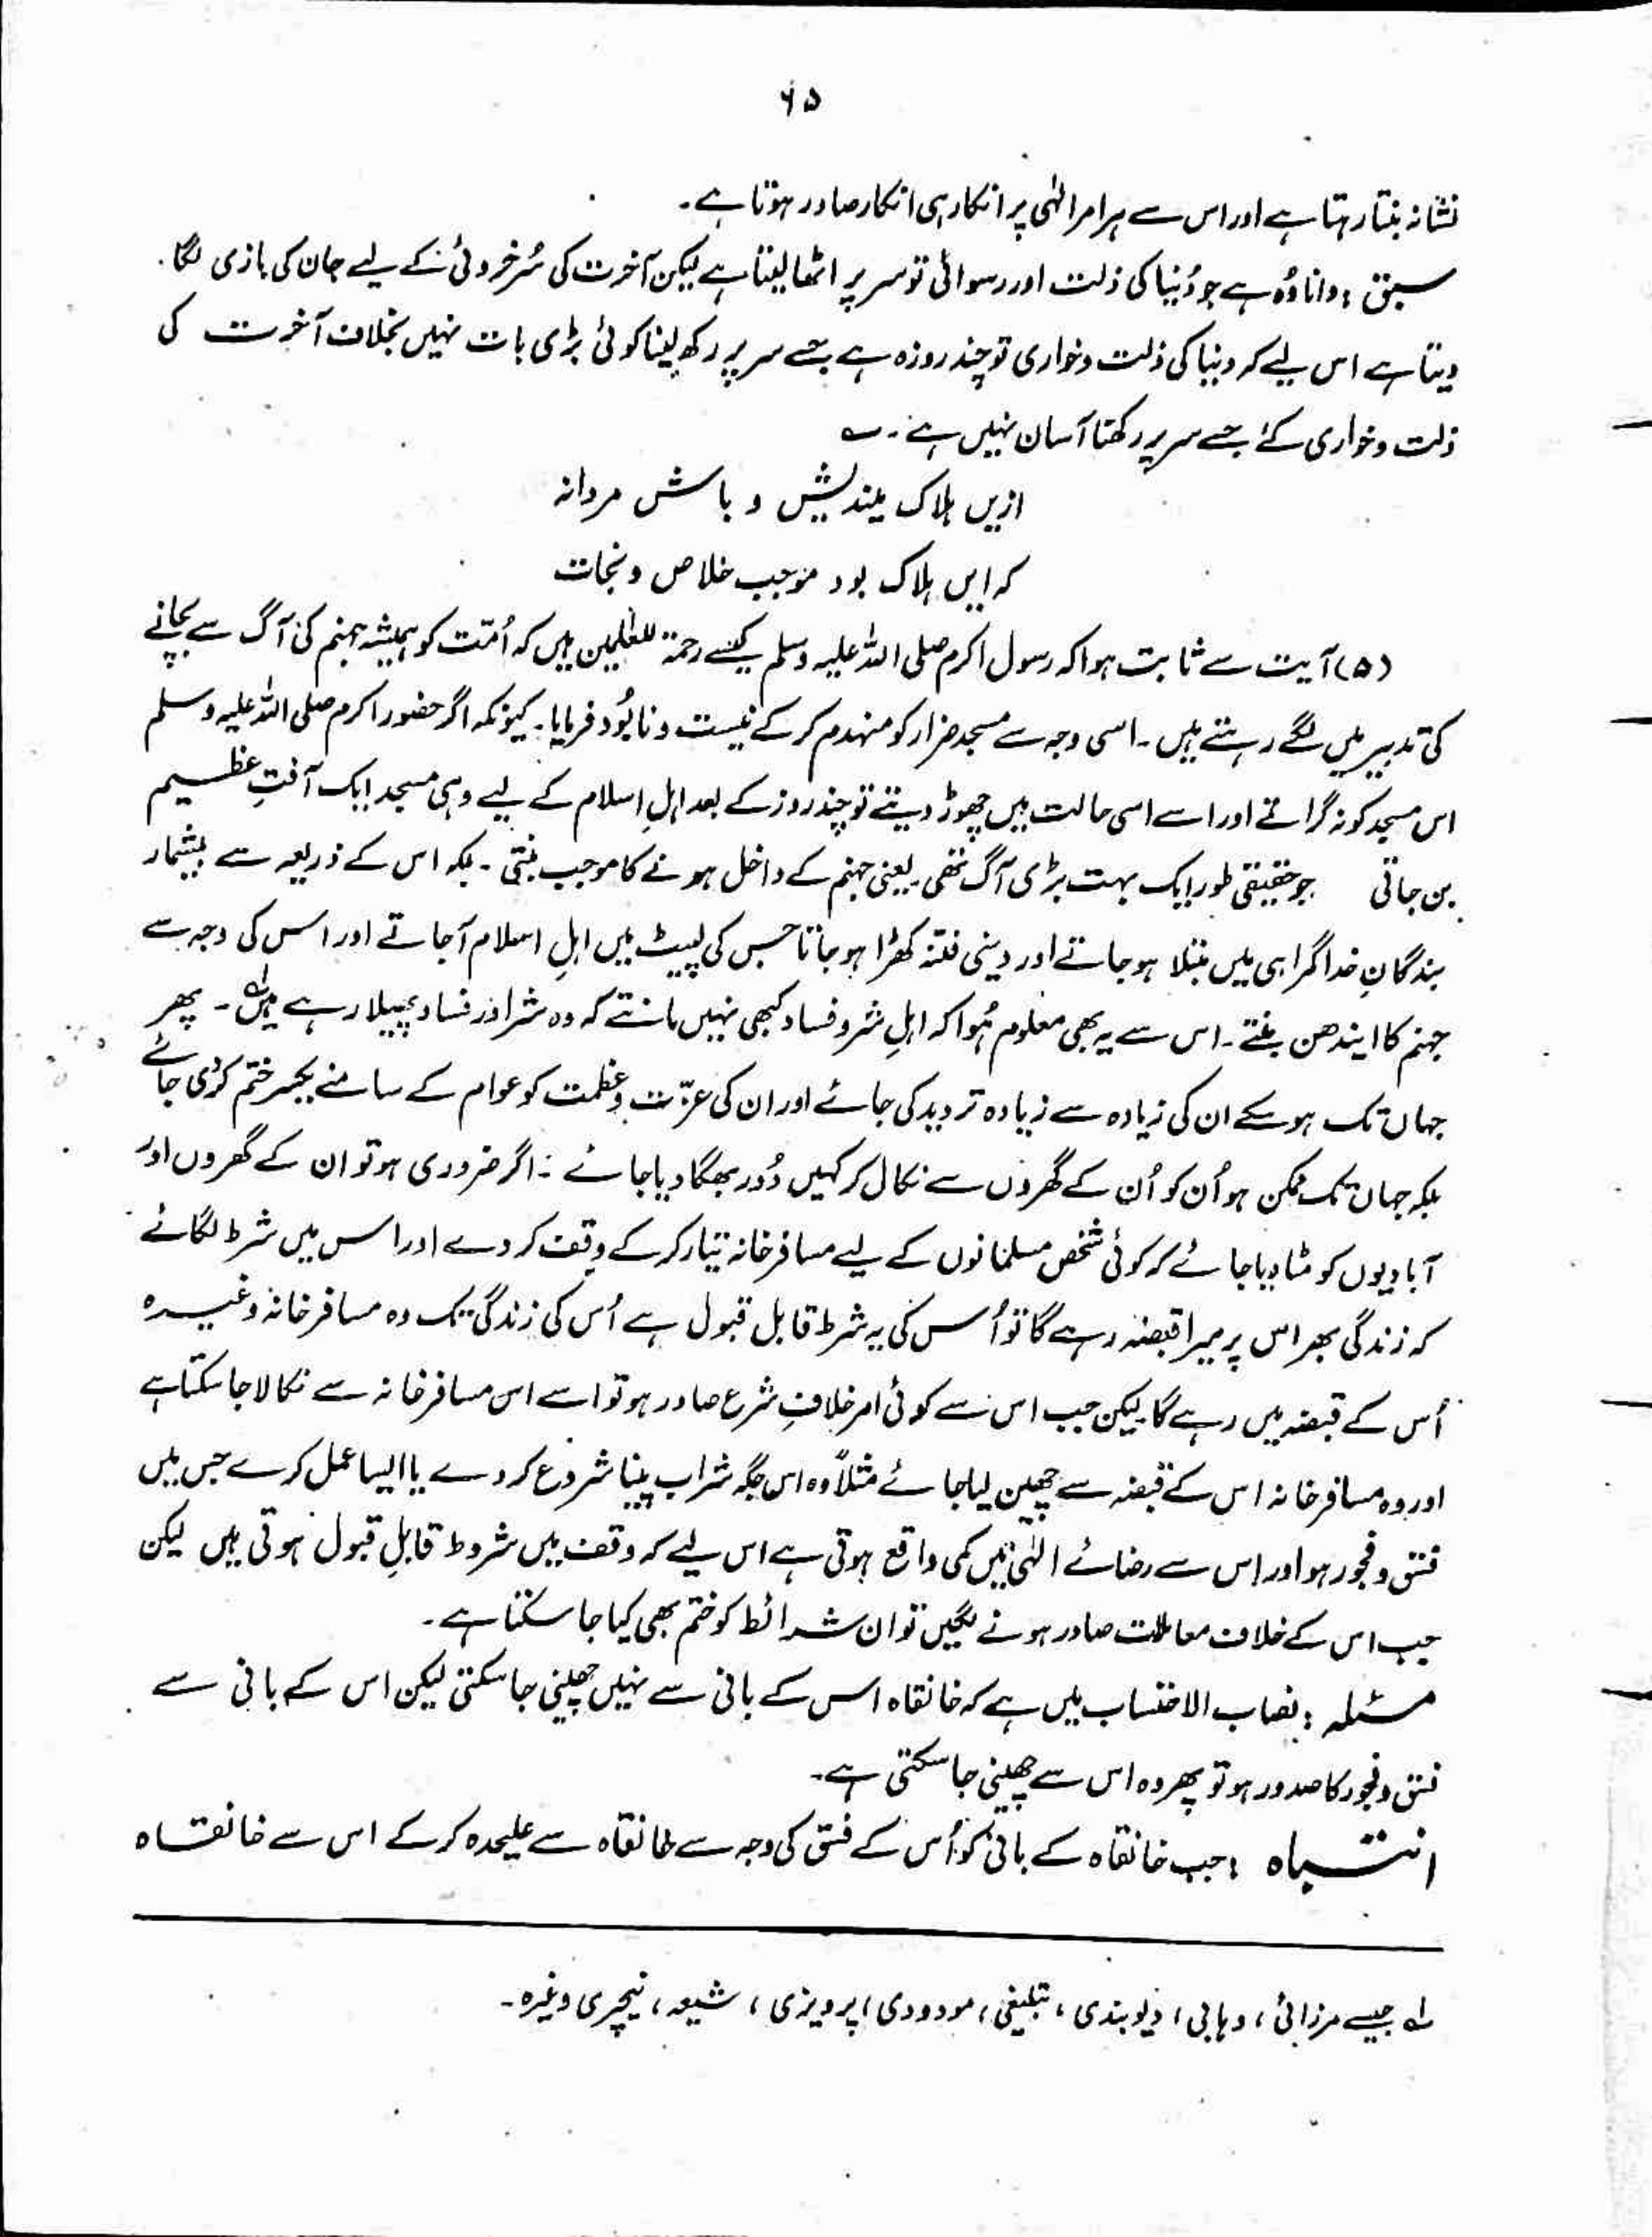 ۶۵
نشانہ بنتا رہتا ہے اور اس سے ہر امر الٰہی پر انکار ہی انکار صادر ہوتا ہے۔
سبق : دانا وُہ ہے جو دُنیا کی ذلت اور رسوائی تو سر پر اٹھا لیتا ہے لیکن آخرت کی سُرخروئی کے لیے جان کی بازی لگا
دیتا ہے اس لیے کہ دنیا کی ذلت وخواری تو چند روزہ ہے جسے سر پر رکھ لینا کوئی بڑی بات نہیں بخلاف آخرت کی
ذلت وخواری کے جسے سر پر رکھنا آسان نہیں ہے۔ ؎
ازیں ہلاک میندیش و باش مردانہ
کہ ایں ہلاک بود موجب خلاص ونجات
(۵) آیت سے ثابت ہوا کہ رسول اکرم صلی اللہ علیہ وسلم کیسے رحمۃ للعٰلمین ہیں کہ اُمّت کو ہمیشہ جہنم کی آگ سے بچانے
کی تدبیر میں لگے رہتے ہیں۔ اسی وجہ سے مسجد ضرار کو منہدم کر کے نیست ونابُود فرمایا۔ کیونکہ اگر حضور اکرم صلی اللہ علیہ وسلم
اس مسجد کو نہ گراتے اور اسے اسی حالت میں چھوڑ دیتے تو چند روز کے بعد اہلِ اسلام کے لیے وہی مسجد ایک آفتِ عظیم
بن جاتی جو حقیقی طور ایک بہت بڑی آگ تھی یعنی جہنم کے داخل ہونے کا موجب بنتی۔ بلکہ اس کے ذریعہ سے بیشمار
بندگانِ خدا گمراہی میں مبتلا ہو جاتے اور دینی فتنہ کھڑا ہو جاتا جس کی لپیٹ میں اہلِ اسلام آ جاتے اور اس کی وجہ سے
جہنم کا ایندھن بنتے۔ اس سے یہ بھی معلوم ہُوا کہ اہلِ شر و فساد کبھی نہیں مانتے کہ وہ شر اور فساد پھیلا رہے ہیں لہ۔ پھر
جہاں تک ہو سکے ان کی زیادہ سے زیادہ تردید کی جائے اور ان کی عزّت وعظمت کو عوام کے سامنے یکسر ختم کردی جائے
بلکہ جہاں تک ممکن ہو اُن کو اُن کے گھروں سے نکال کر کہیں دُور بھگا دیا جائے۔ اگر ضروری ہو تو ان کے گھروں اور
آبادیوں کو مٹا دیا جائے کہ کوئی شخص مسلمانوں کے لیے مسافر خانہ تیار کر کے وقف کر دے اور اس میں شرط لگائے
کہ زندگی بھر اس پر میرا قبضہ رہے گا تو اُس کی یہ شرط قابل قبول ہے اُس کی زندگی تک وہ مسافر خانہ وغیرہ
اُس کے قبضہ میں رہے گا لیکن جب اس سے کوئی امر خلافِ شرع صادر ہو تو اسے اس مسافر خانہ سے نکالا جا سکتا ہے
اور وہ مسافر خانہ اس کے قبضہ سے چھین لیا جائے مثلاً وہ اس جگہ شراب پینا شروع کر دے یا ایسا عمل کرے جس میں
فسق و فجور ہو اور اس سے رضائے الٰہی میں کمی واقع ہوتی ہے اس لیے کہ وقف میں شروط قابلِ قبول ہوتی ہیں لیکن
جب اس کے خلاف معاملات صادر ہونے لگیں تو ان شرائط کو ختم بھی کیا جا سکتا ہے۔
مسئلہ : نصاب الاحتساب میں ہے کہ خانقاہ اس کے بانی سے نہیں چھینی جا سکتی لیکن اس کے بانی سے
فسق وفجور کا صدور ہو تو پھر وہ اس سے چھینی جا سکتی ہے۔
انتباہ : جب خانقاہ کے بانی کو اُس کے فسق کی وجہ سے خانقاہ سے علیحدہ کر کے اس سے خانقاہ
لہ جیسے مرزائی، وہابی، دیوبندی، تبلیغی، مودودی، پرویزی، شیعہ، نیچری وغیرہ۔